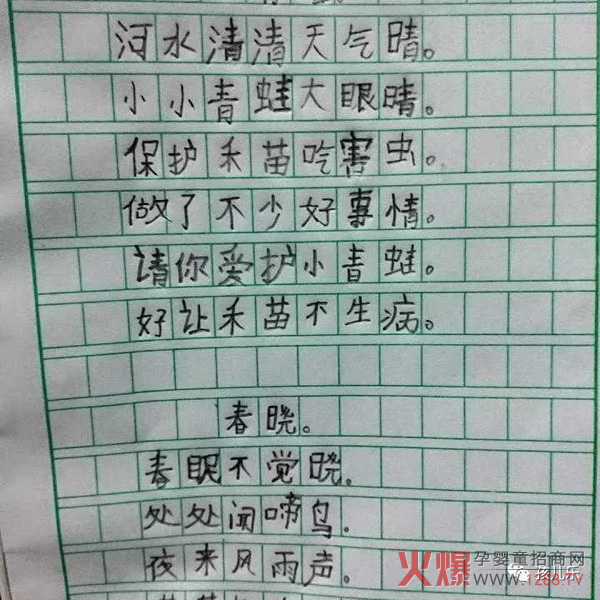 河水清清天气晴。
小小青蛙大眼晴。
保护禾苗吃害虫。
做了不少好事情。
请你爱护小青蛙。
好让禾苗不生病。
春晓。
春眠不觉晓.
处处闻啼鸟.
夜来风雨声。
火爆孕婴童招商网
www.1288.TV